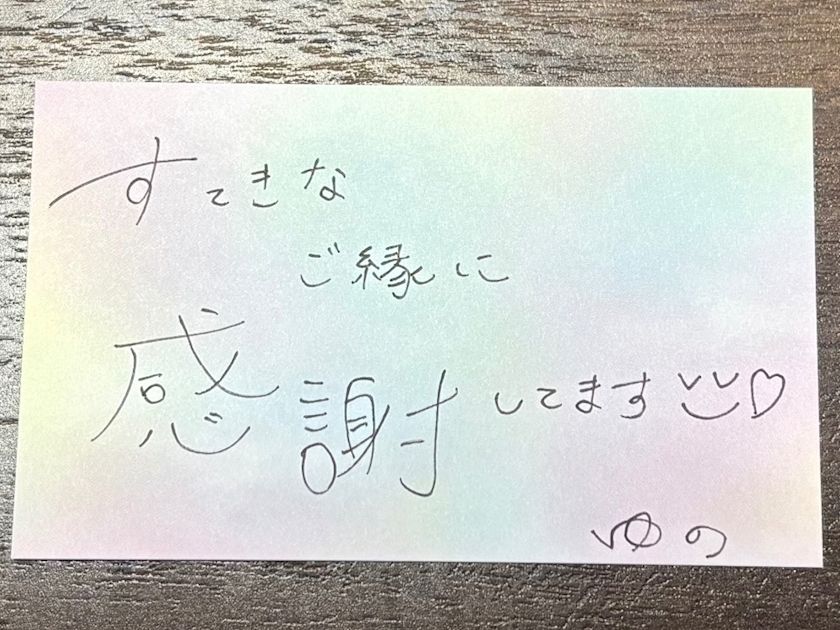 すてきな
ご縁に
感謝してます♡
ゆの